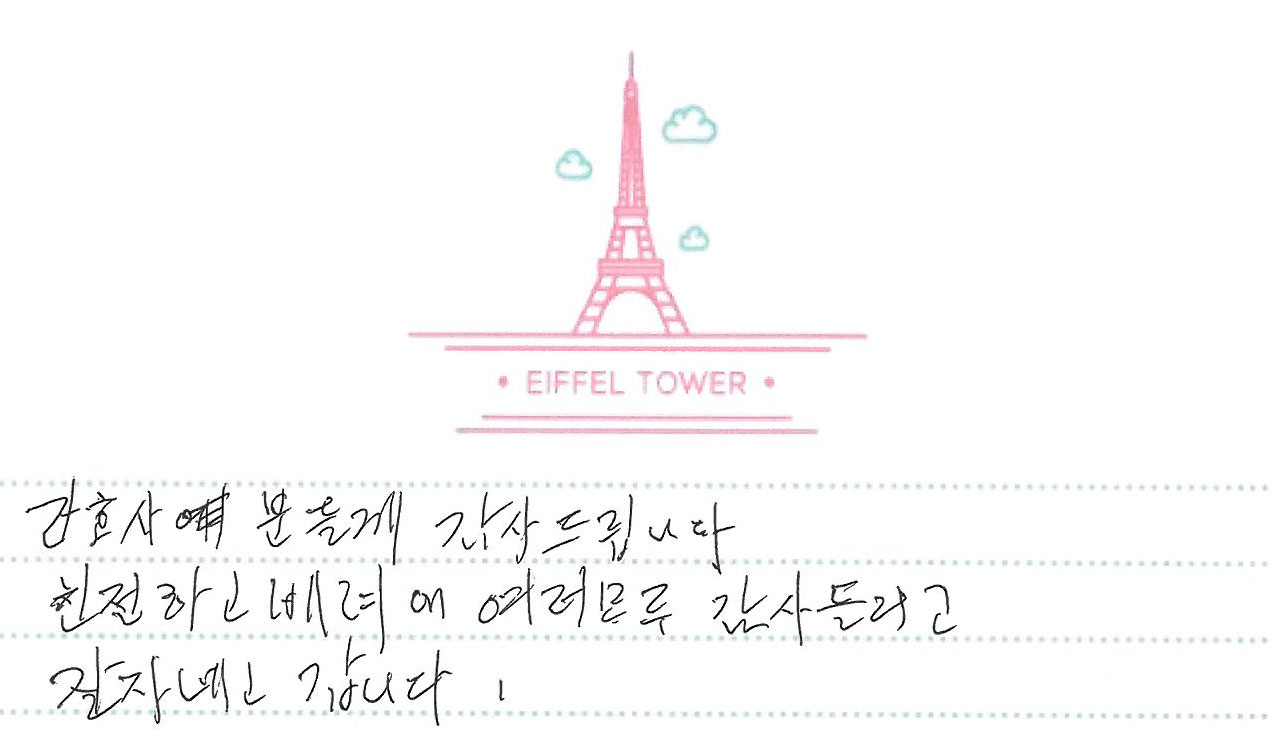 EIFFEL TOWER
간호사 분들게 감사드립니다
친절하고 배려에 여러모루 감사들리고
잘지내고 갑니다.